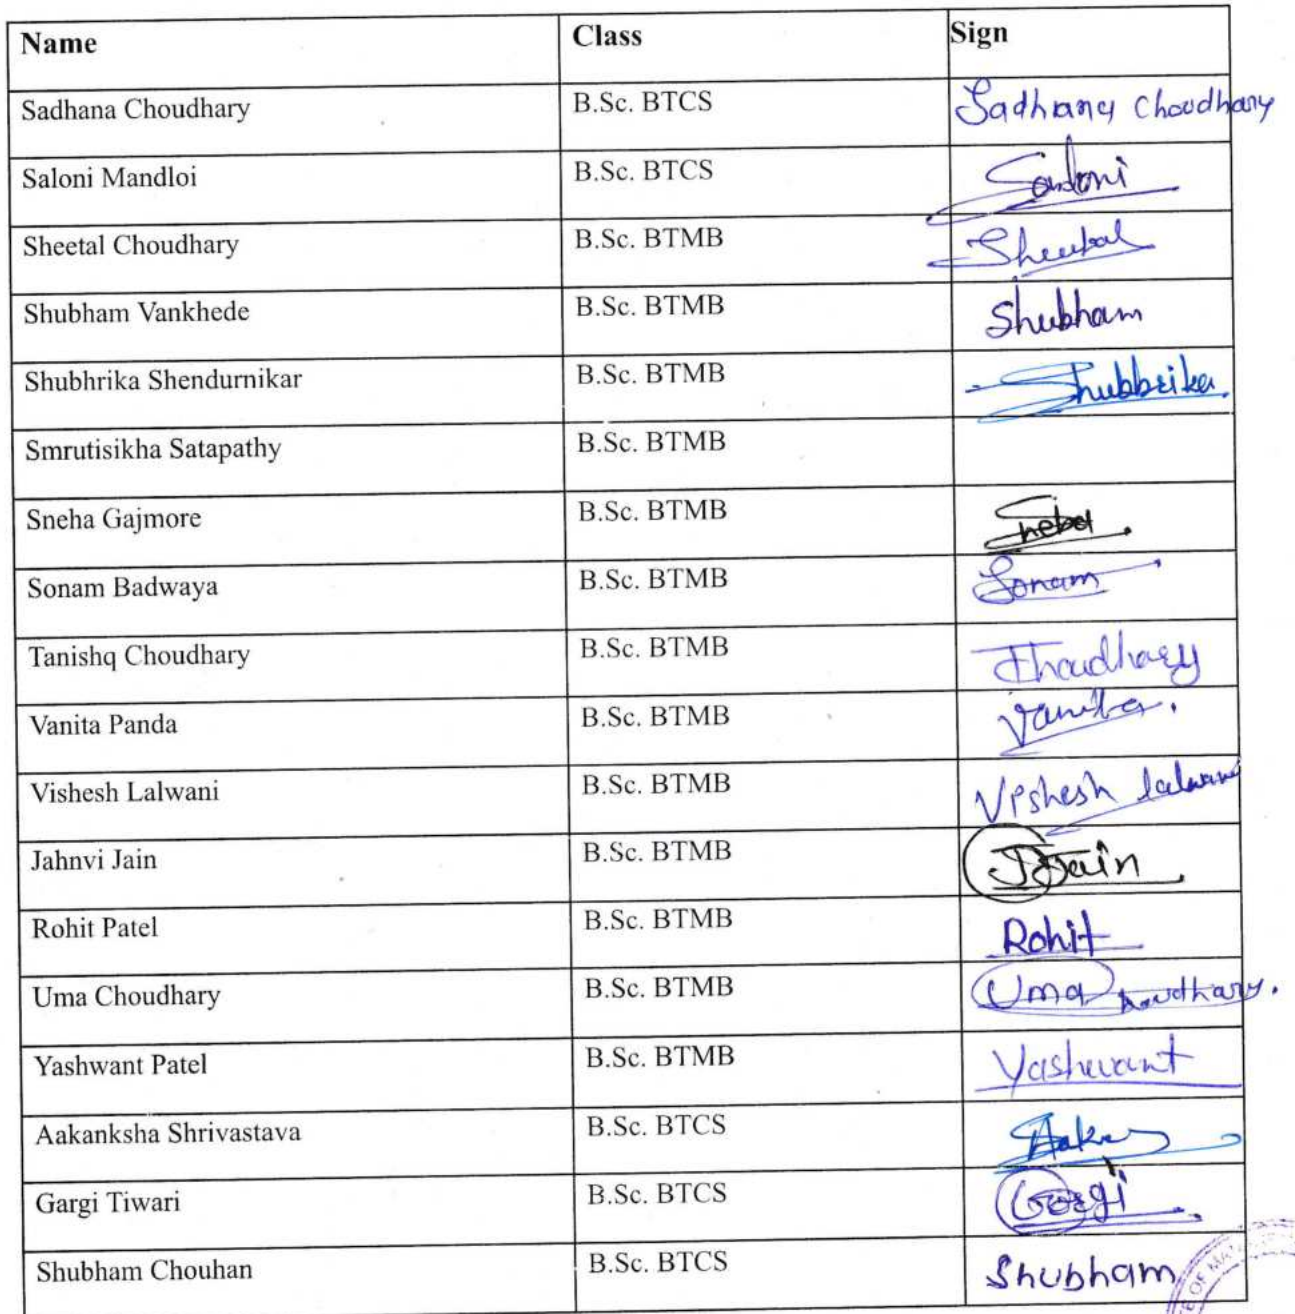 Name Class Sign
Sadhana Choudhary B.Sc. BTCS Sadhana Choudhary
Saloni Mandloi B.Sc. BTCS Saloni
Sheetal Choudhary B.Sc. BTMB Sheetal
Shubham Vankhede B.Sc. BTMB Shubham
Shubhrika Shendurnikar B.Sc. BTMB Shubhrika
Smrutisikha Satapathy B.Sc. BTMB
Sneha Gajmore B.Sc. BTMB Sneha
Sonam Badwaya B.Sc. BTMB Sonam
Tanishq Choudhary B.Sc. BTMB
Vanita Panda B.Sc. BTMB Vanita
Vishesh Lalwani B.Sc. BTMB Vishesh Lalwani
Jahnvi Jain B.Sc. BTMB JJain
Rohit Patel B.Sc. BTMB Rohit
Uma Choudhary B.Sc. BTMB Uma Choudhary
Yashwant Patel B.Sc. BTMB Yashwant
Aakanksha Shrivastava B.Sc. BTCS
Gargi Tiwari B.Sc. BTCS Gargi
Shubham Chouhan B.Sc. BTCS Shubham